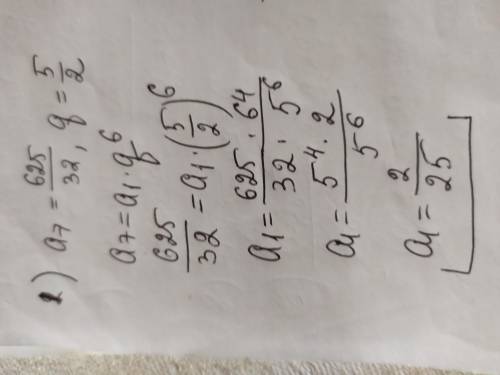 1) a₇ = 625/32, q = 5/2
a₇ = a₁ · q⁶
625/32 = a₁ · (5/2)⁶
a₁ = 625 · 64 / 32 · 5⁶
a₁ = 5⁴ · 2 / 5⁶
a₁ = 2/25